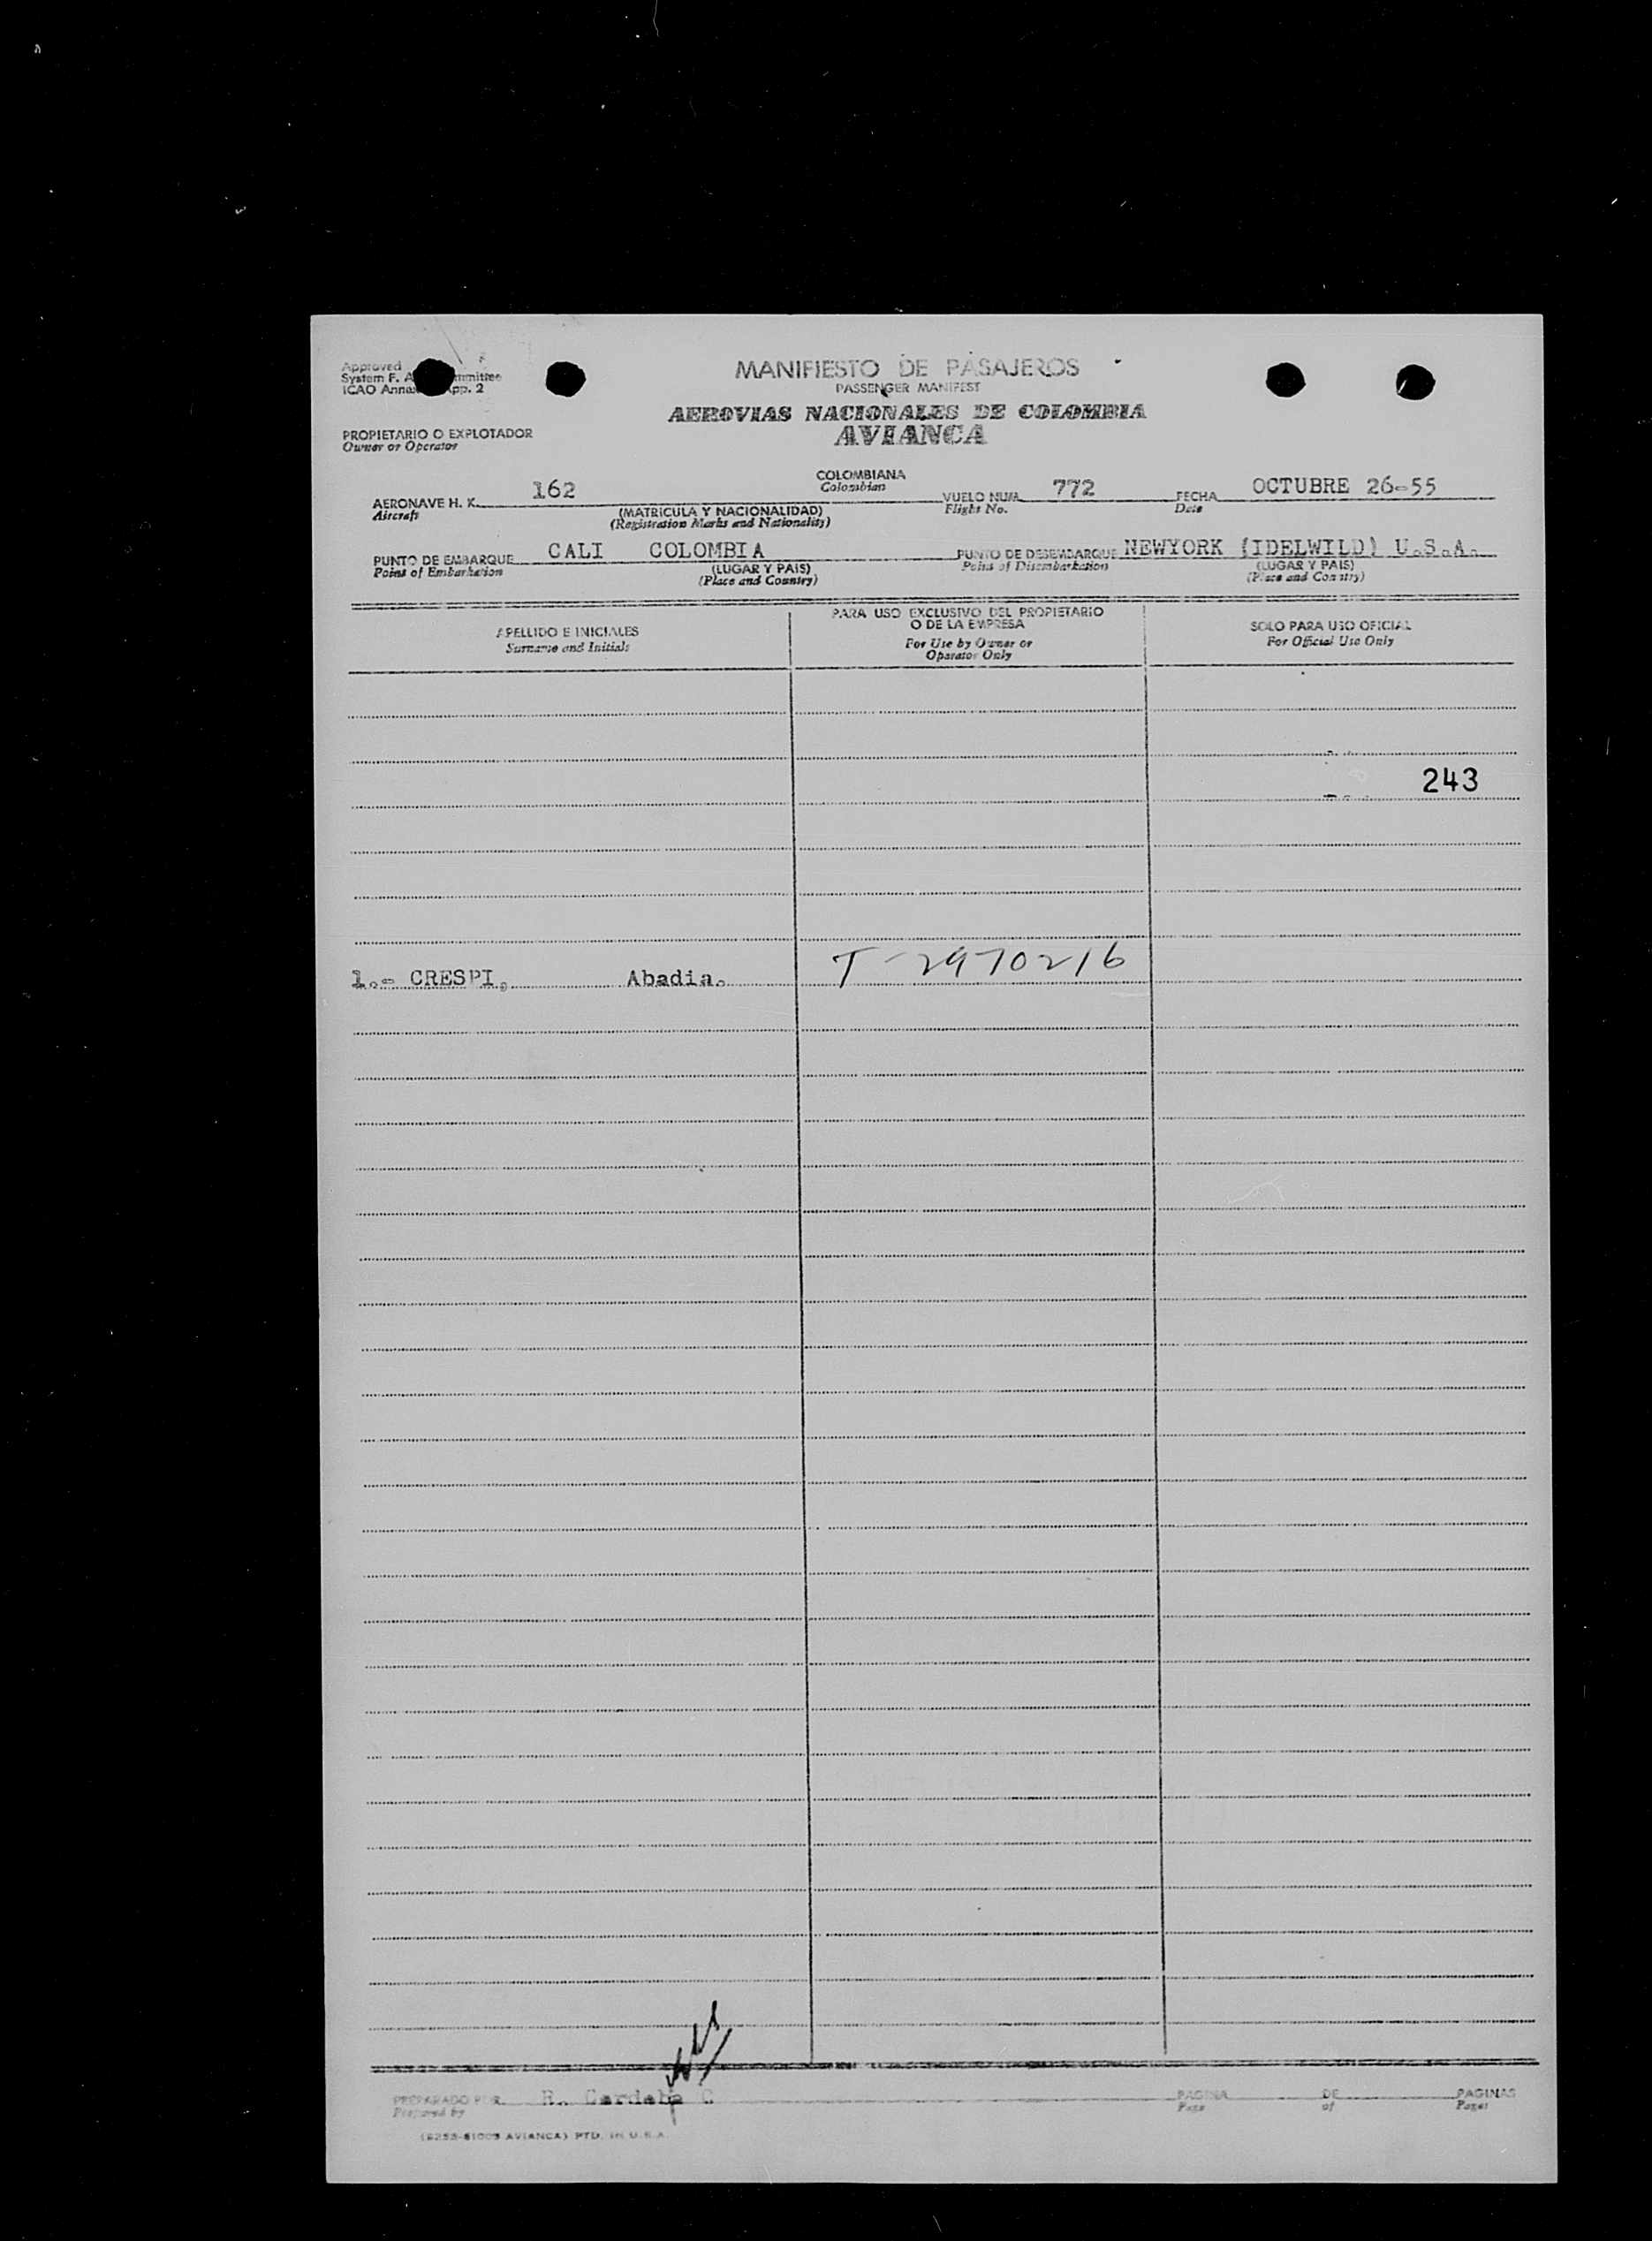 MANIFIESTO DE PASAJEROS
PASSENGER MANIFEST
Approved
System F. A mmittee
ICAO Anne pp. 2
AEROVIAS NACIONALES DE COLOMBIA
AVIANCA
PROPIETARIO O EXPLOTADOR
Owner or Operator
AERONAVE H. K. 162 COLOMBIANA VUELO NUM. 772 FECHA OCTUBRE 26-55
Aircraft Colombian Flight No. Date
(MATRICULA Y NACIONALIDAD)
(Registration Marks and Nationality)
PUNTO DE EMBARQUE CALI COLOMBIA PUNTO DE DESEMBARQUE NEWYORK (IDELWILD) U.S.A.
Point of Embarkation (LUGAR Y PAIS) Point of Disembarkation (LUGAR Y PAIS)
(Place and Country) (Place and Country)
APELLIDO E INICIALES
Surname and Initials
PARA USO EXCLUSIVO DEL PROPIETARIO
O DE LA EMPRESA
For Use by Owner or
Operator Only
SOLO PARA USO OFICIAL
For Official Use Only
243
1.- CRESPI, Abadia. T-2970216
PREPARADO POR C PAGINA DE PAGINAS
Prepared by Page of Pages
(8255-81005 AVIANCA) PTD. IN U.S.A.